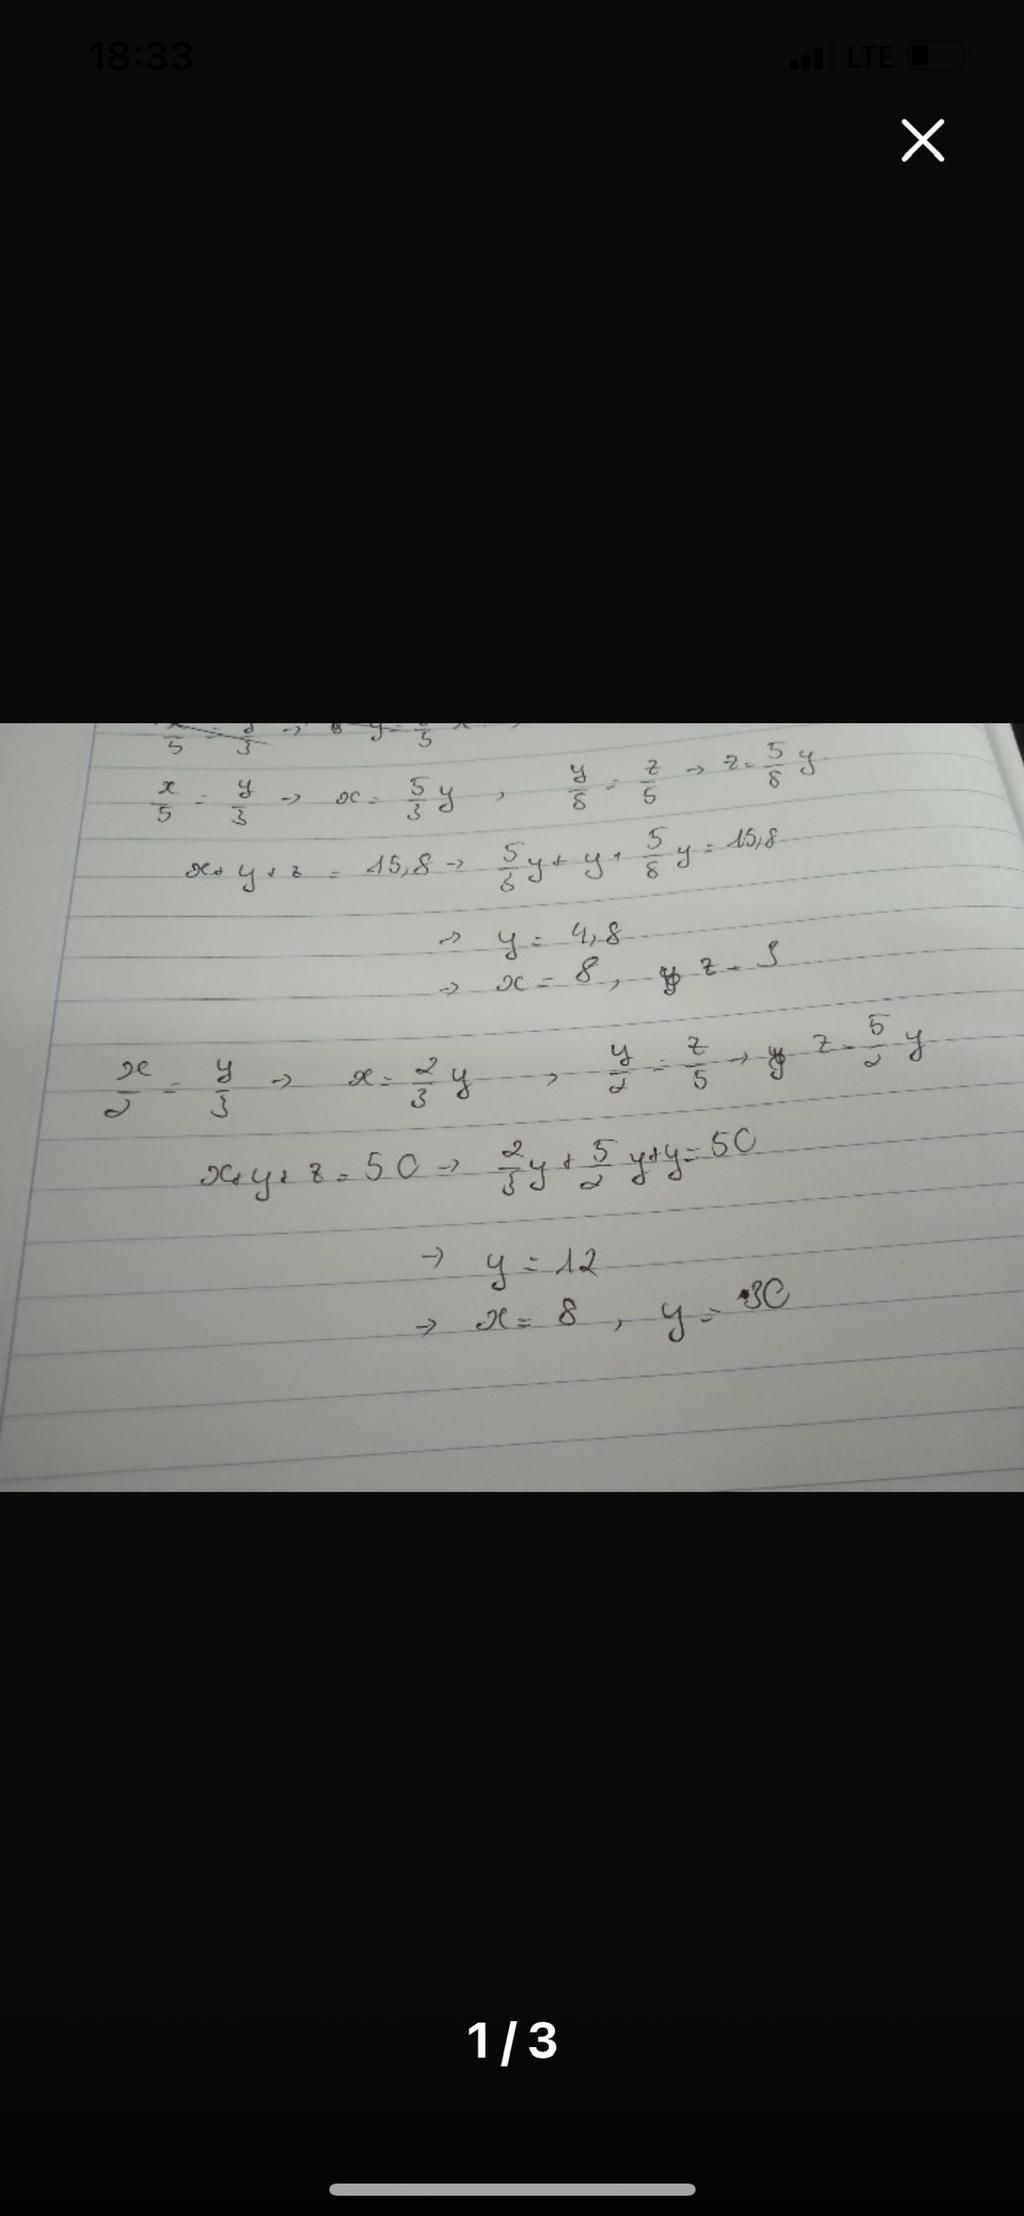 18:33 LTE
x/5 = y/3 → x = 5/3 y , y/8 = z/5 → z = 5/8 y.
x + y + z = 15,8 → 5/3 y + y + 5/8 y = 15,8
→ y = 4,8
→ x = 8 , z = 3
x/2 = y/3 → x = 2/3 y , y/2 = z/5 → z = 5/2 y
x + y + z = 50 → 2/3 y + 5/2 y + y = 50
→ y = 12
→ x = 8 , y = 30
1/3